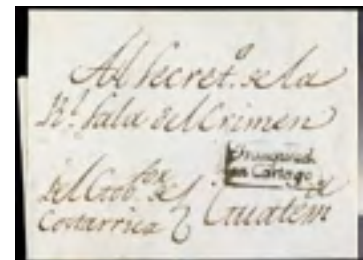 Al Secret.º de la
Rl. Sala del Crimen
en Cartago
del Gob.or de
Costarrica
Guatem